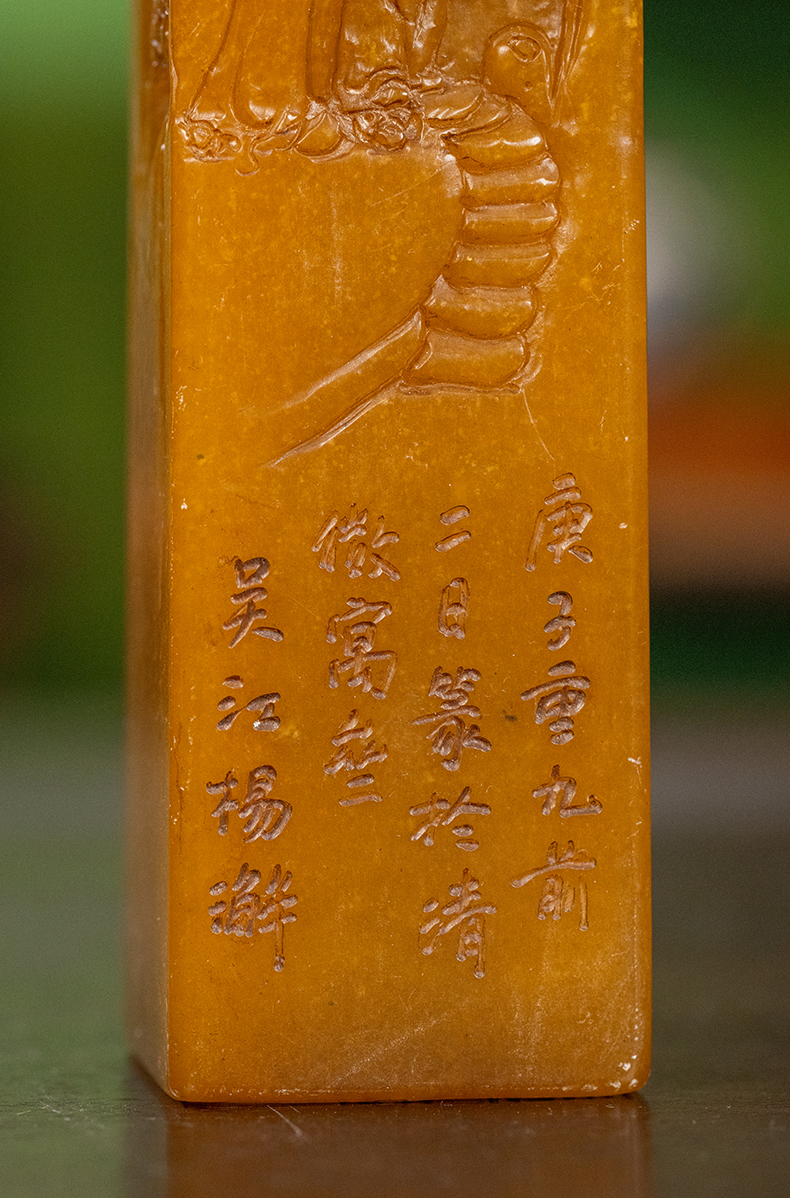 庚子重九前
二日篆於清
微寓亝
吳江楊澥